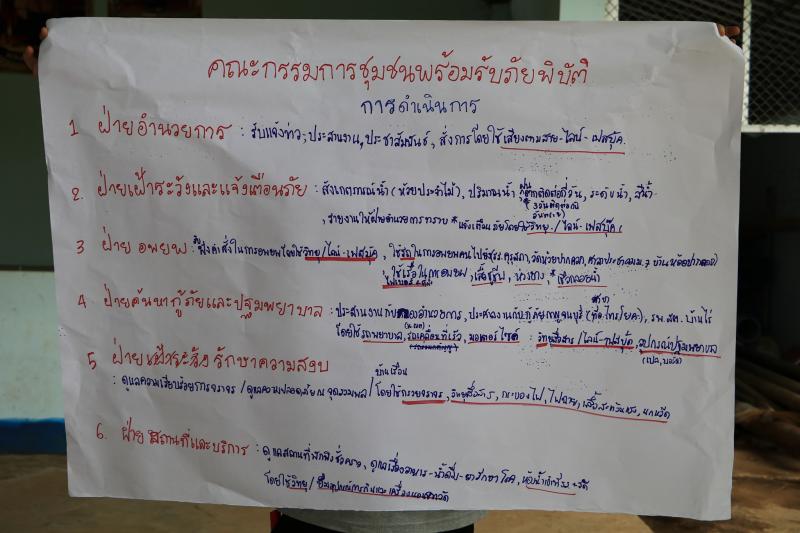 คณะกรรมการชุมชนพร้อมรับภัยพิบัติ
การดำเนินการ
1 ฝ่ายอำนวยการ : รับแจ้งข่าว, ประสานงาน, ประชาสัมพันธ์, สั่งการโดยใช้เสียงตามสาย-ไลน์-เฟสบุ๊ค
2. ฝ่ายเฝ้าระวังและแจ้งเตือนภัย : สังเกตการณ์น้ำ (ห้วยประจำไม้), ปริมาณน้ำ ฝนตกติดต่อกี่วัน, ระดับน้ำ, สีน้ำ-
* 3 วันติดต่อกัน
, รายงานให้ฝ่ายอำนวยการทราบ * แจ้งเตือนภัยโดยใช้วิทยุ / ไลน์-เฟสบุ๊ค
3 ฝ่าย อพยพ : รับฟังคำสั่งในการอพยพโดยใช้วิทยุ/ไลน์-เฟสบุ๊ค, ใช้รถในการอพยพคนไปยังรร.คุรุสภา, วัดห้วยปากคอก,
* ใช้เรือในการอพยพ, เสื้อชูชีพ, ห่วงยาง, * เชือกลอยน้ำ
4 ฝ่ายค้นหากู้ภัยและปฐมพยาบาล : ประสานงานกับกองอำนวยการ, ประสานงานกับกู้ภัยกาญจนบุรี, รพ.สต. บ้านไร่
โดยใช้รถพยาบาล, รถเคลื่อนที่เร็ว, มอเตอร์ไซค์ : วิทยุสื่อสาร / ไลน์-เฟสบุ๊ค, อุปกรณ์ปฐมพยาบาล
5 ฝ่ายเฝ้าระวัง รักษาความสงบ
: ดูแลความเรียบร้อยการจราจร / ดูแลความปลอดภัย ณ จุดรวมพล / บ้านเรือน โดยใช้กรวยจราจร, วิทยุสื่อสาร, กระบองไฟ, ไฟฉาย, เสื้อสะท้อนแสง, นกหวีด
6. ฝ่าย สถานที่และบริการ : ดูแลสถานที่พักพิงชั่วคราว, ดูแลเรื่องอาหาร-น้ำดื่ม-ยารักษาโรค,
โดยใช้วิทยุ /